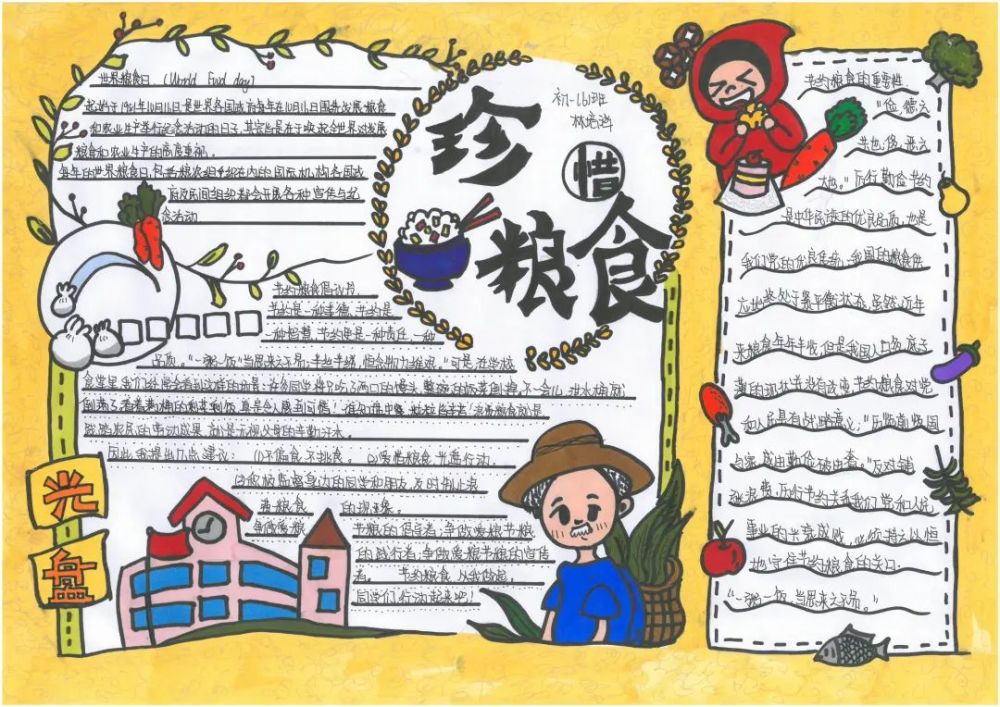 世界粮食日 (World Food day)
起始于1981年10月16日是世界各国政府每年在10月16日围绕发展粮食
和农业生产举行纪念活动的日子,其宗旨是在于唤起全世界对发展
粮食和农业生产的高度重视。
每年的世界粮食日,包括粮农组织在内的国际机构各国政
府及民间组织都会开展各种宣传与纪
念活动
珍
惜
粮食
初一(6)班
节约粮食倡议书
节约是一种美德,节约是
一种智慧,节约更是一种责任,一种
品质。"一粥一饭"当思来之不易;半丝半缕,恒念物力维艰。"可是,在学校
食堂里,我们经常会看到这样的场景:许多同学将只吃了两口的馒头
因此我提出几点建议: (1)不偏食,不挑食。 (2)爱惜粮食,光盘行动。
(3)积极监督身边的同学和朋友,及时制止浪
费粮食 的现象。
争做爱粮 节粮的倡导者;争做爱粮节粮
的践行者;争做爱粮节粮的宣传
者。 节约粮食,从我做起。
同学们,行动起来吧!
光
盘
节约粮食的重要性
"俭,德之
共也;侈,恶之
大也。"厉行勤俭节约
是中华民族的优良品质,也是
我们党的优良传统,我国的粮食供
应始终处于紧平衡状态,虽然近年
来粮食年年丰收,但是我国人口多,底子
薄的现状并没有改变,节约粮食对党
和人民具有战略意义:"历览前贤国
与家,成由勤俭破由奢。"反对铺
张浪费,厉行节约关系我们党和人民
事业的兴衰成败,必须持之以恒
地守住节约粮食的关口。
"一粥一饭,当思来之不易。"